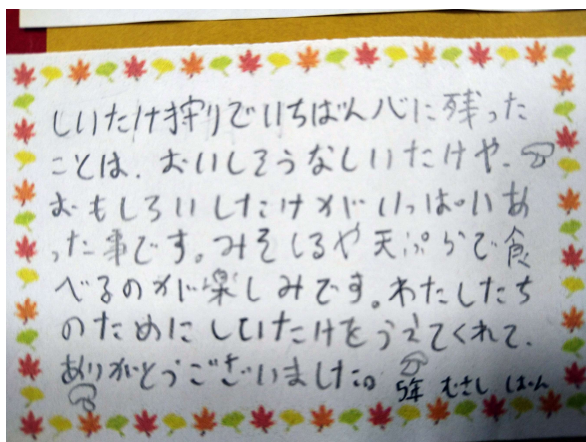 しいたけ狩りでいちばん心に残った
ことは、おいしそうなしいたけや、
おもしろいしたけがいっぱいあ
った事です。みそしるや天ぷらで食
べるのが楽しみです。わたしたち
のためにしいたけをうえてくれて、
ありがとうございました。
5年 むさし はん